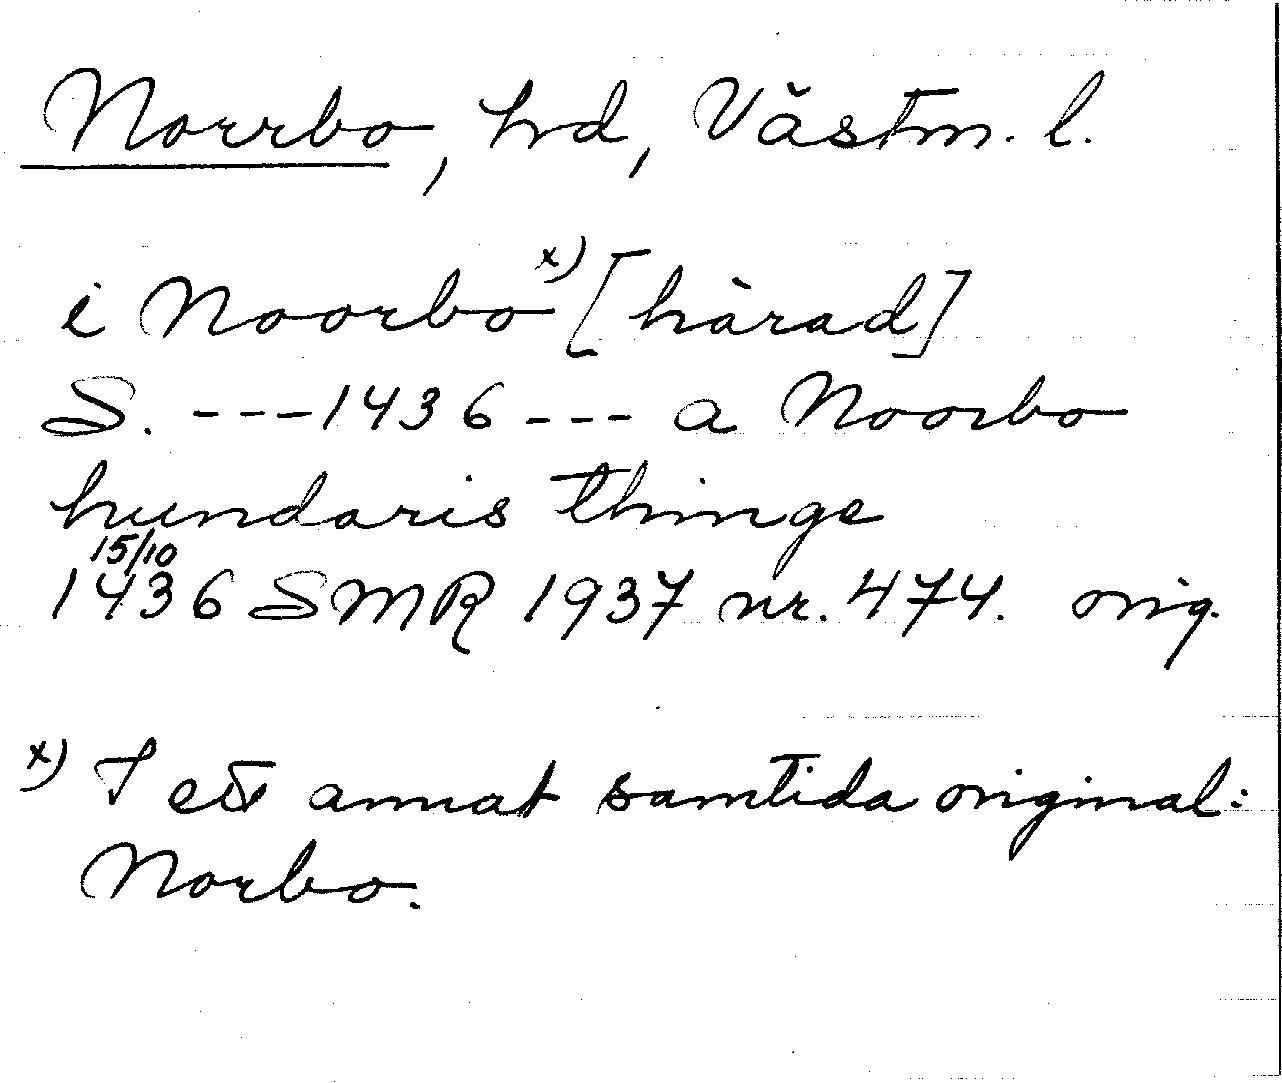 Norrbo, hd, Västm. l.
i Noorbo x) [härad]
S. ---1436--- a Noorbo
hundaris thinge
15/10
1436 SMR 1937 nr. 474. orig.
x) I ett annat samtida original:
Norbo.